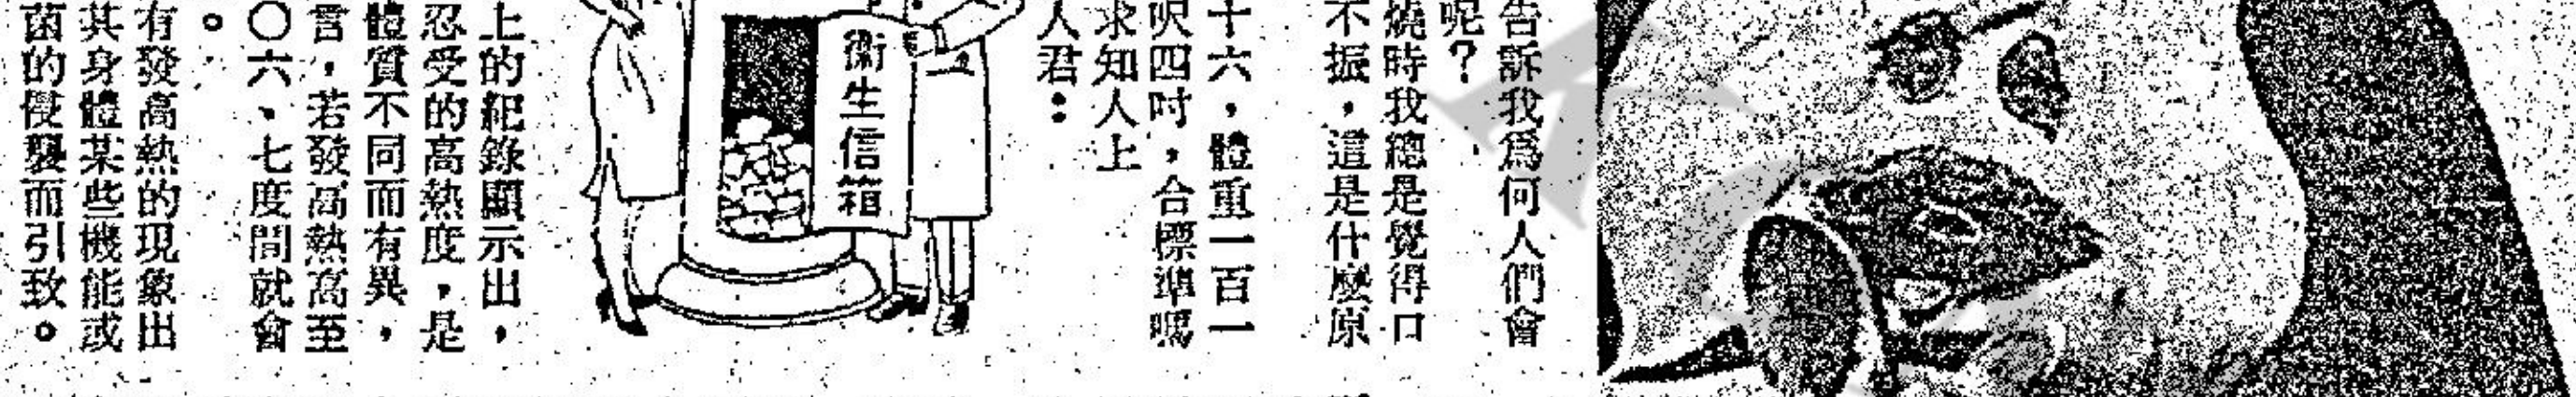 告訴我爲何人們會
呢？
燒時我總是覺得口
不振，這是什麼原
十六，體重一百一
呎四吋，合標準嗎
求知人上
人君：
衞生信箱
上的紀錄顯示出，
忍受的高熱度，是
體質不同而有異，
言，若發高熱高至
〇六、七度間就會
。
有發高熱的現象出
其身體某些機能或
菌的侵襲而引致。